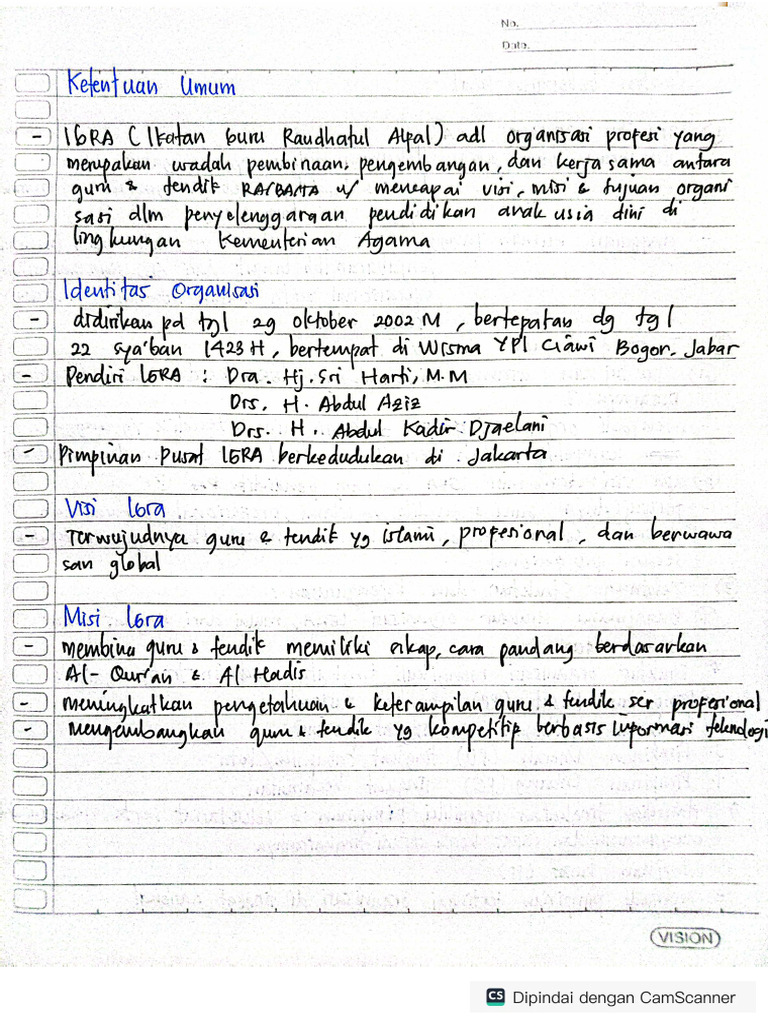 No.
Date.
Ketentuan Umum
- IGRA (Ikatan Guru Raudhatul Atfal) adl organisasi profesi yang
merupakan wadah pembinaan, pengembangan, dan kerja sama antara
guru & tendik RA/BA/TA u/ mencapai visi, misi & tujuan organi
sasi dlm penyelenggaraan pendidikan anak usia dini di
lingkungan Kementerian Agama
Identitas Organisasi
- didirikan pd tgl 29 oktober 2002 M, bertepatan dg tgl
22 sya'ban 1423 H, bertempat di Wisma YPI Ciawi Bogor, Jabar
- Pendiri IGRA : Dra. Hj. Sri Harti, M.M
Drs. H. Abdul Aziz
Drs. H. Abdul Kadir Djaelani
- Pimpinan Pusat IGRA berkedudukan di Jakarta
Visi Igra
- Terwujudnya guru & tendik yg islami, profesional, dan berwawa
san global
Misi Igra
- membina guru & tendik memiliki sikap, cara pandang berdasarkan
Al-Qur'an & Al Hadis
- meningkatkan pengetahuan & keterampilan guru & tendik scr profesional
- mengembangkan guru & tendik yg kompetitif berbasis informasi teknologi
VISION
CS Dipindai dengan CamScanner